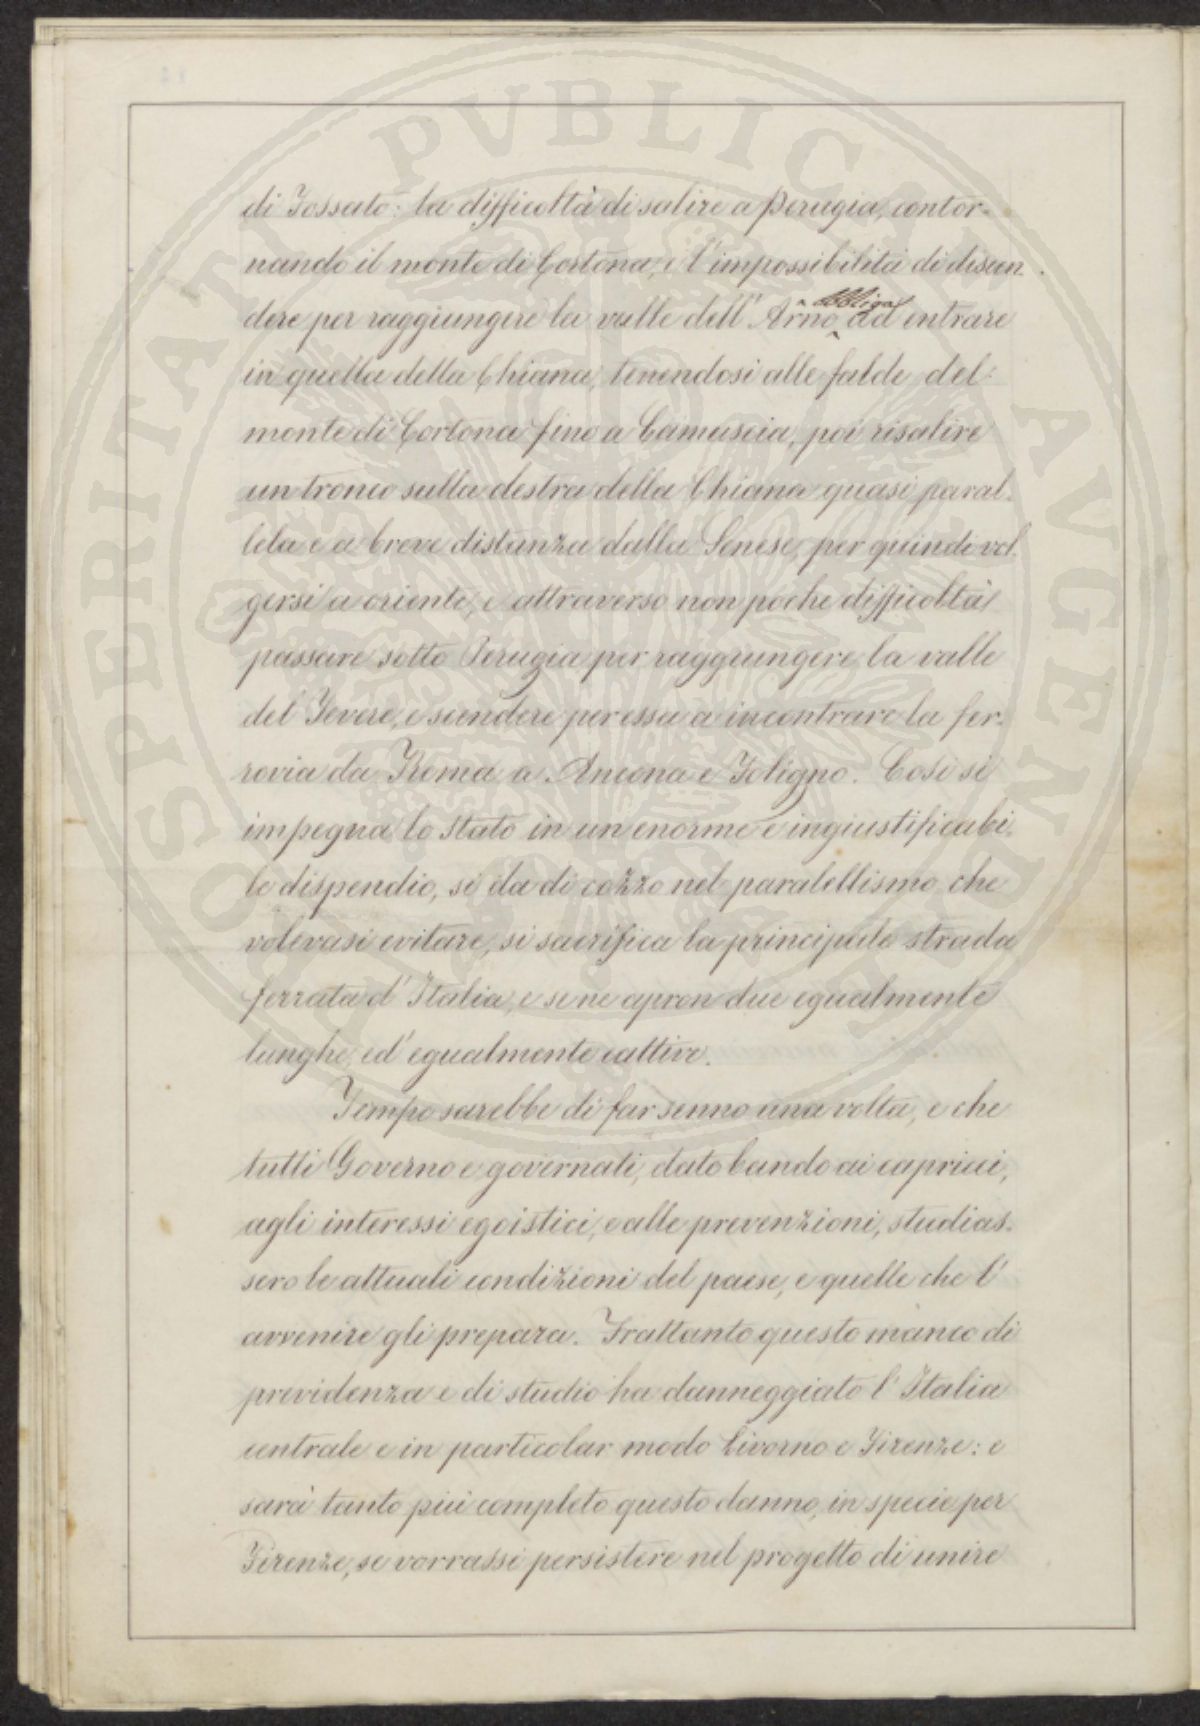 di Fossato: la difficoltà di salire a Perugia, contor-
nando il monte di Cortona, e l'impossibilità di discen-
dere per raggiungere la valle dell'Arno obbliga ad entrare
in quella della Chiana, tenendosi alle falde del
monte di Cortona fino a Camuscia, poi risalire
un tronco sulla destra della Chiana quasi paral-
lela e a breve distanza dalla Senese, per quindi vol-
gersi a oriente, e attraverso non poche difficoltà
passare sotto Perugia per raggiungere la valle
del Tevere, e scendere per essa a incontrare la fer-
rovia da Roma a Ancona e Foligno. Così si
impegna lo Stato in un enorme e ingiustificabi-
le dispendio, si da di cozzo nel paralellismo che
volevasi evitare, si sacrifica la principale strada
ferrata d'Italia, e se ne apron due egualmente
lunghe, ed egualmente cattive.
Tempo sarebbe di far senno una volta, e che
tutti Governo e governati, dato bando ai capricci,
agli interessi egoistici, e alle prevenzioni, studias-
sero le attuali condizioni del paese, e quelle che l'
avvenire gli prepara. Frattanto questo manco di
previdenza e di studio ha danneggiato l'Italia
centrale e in particolar modo Livorno e Firenze: e
sarà tanto più completo questo danno, in specie per
Firenze, se vorrassi persistere nel progetto di unire
PROSPERITATI PVBLICAE AVGENDAE